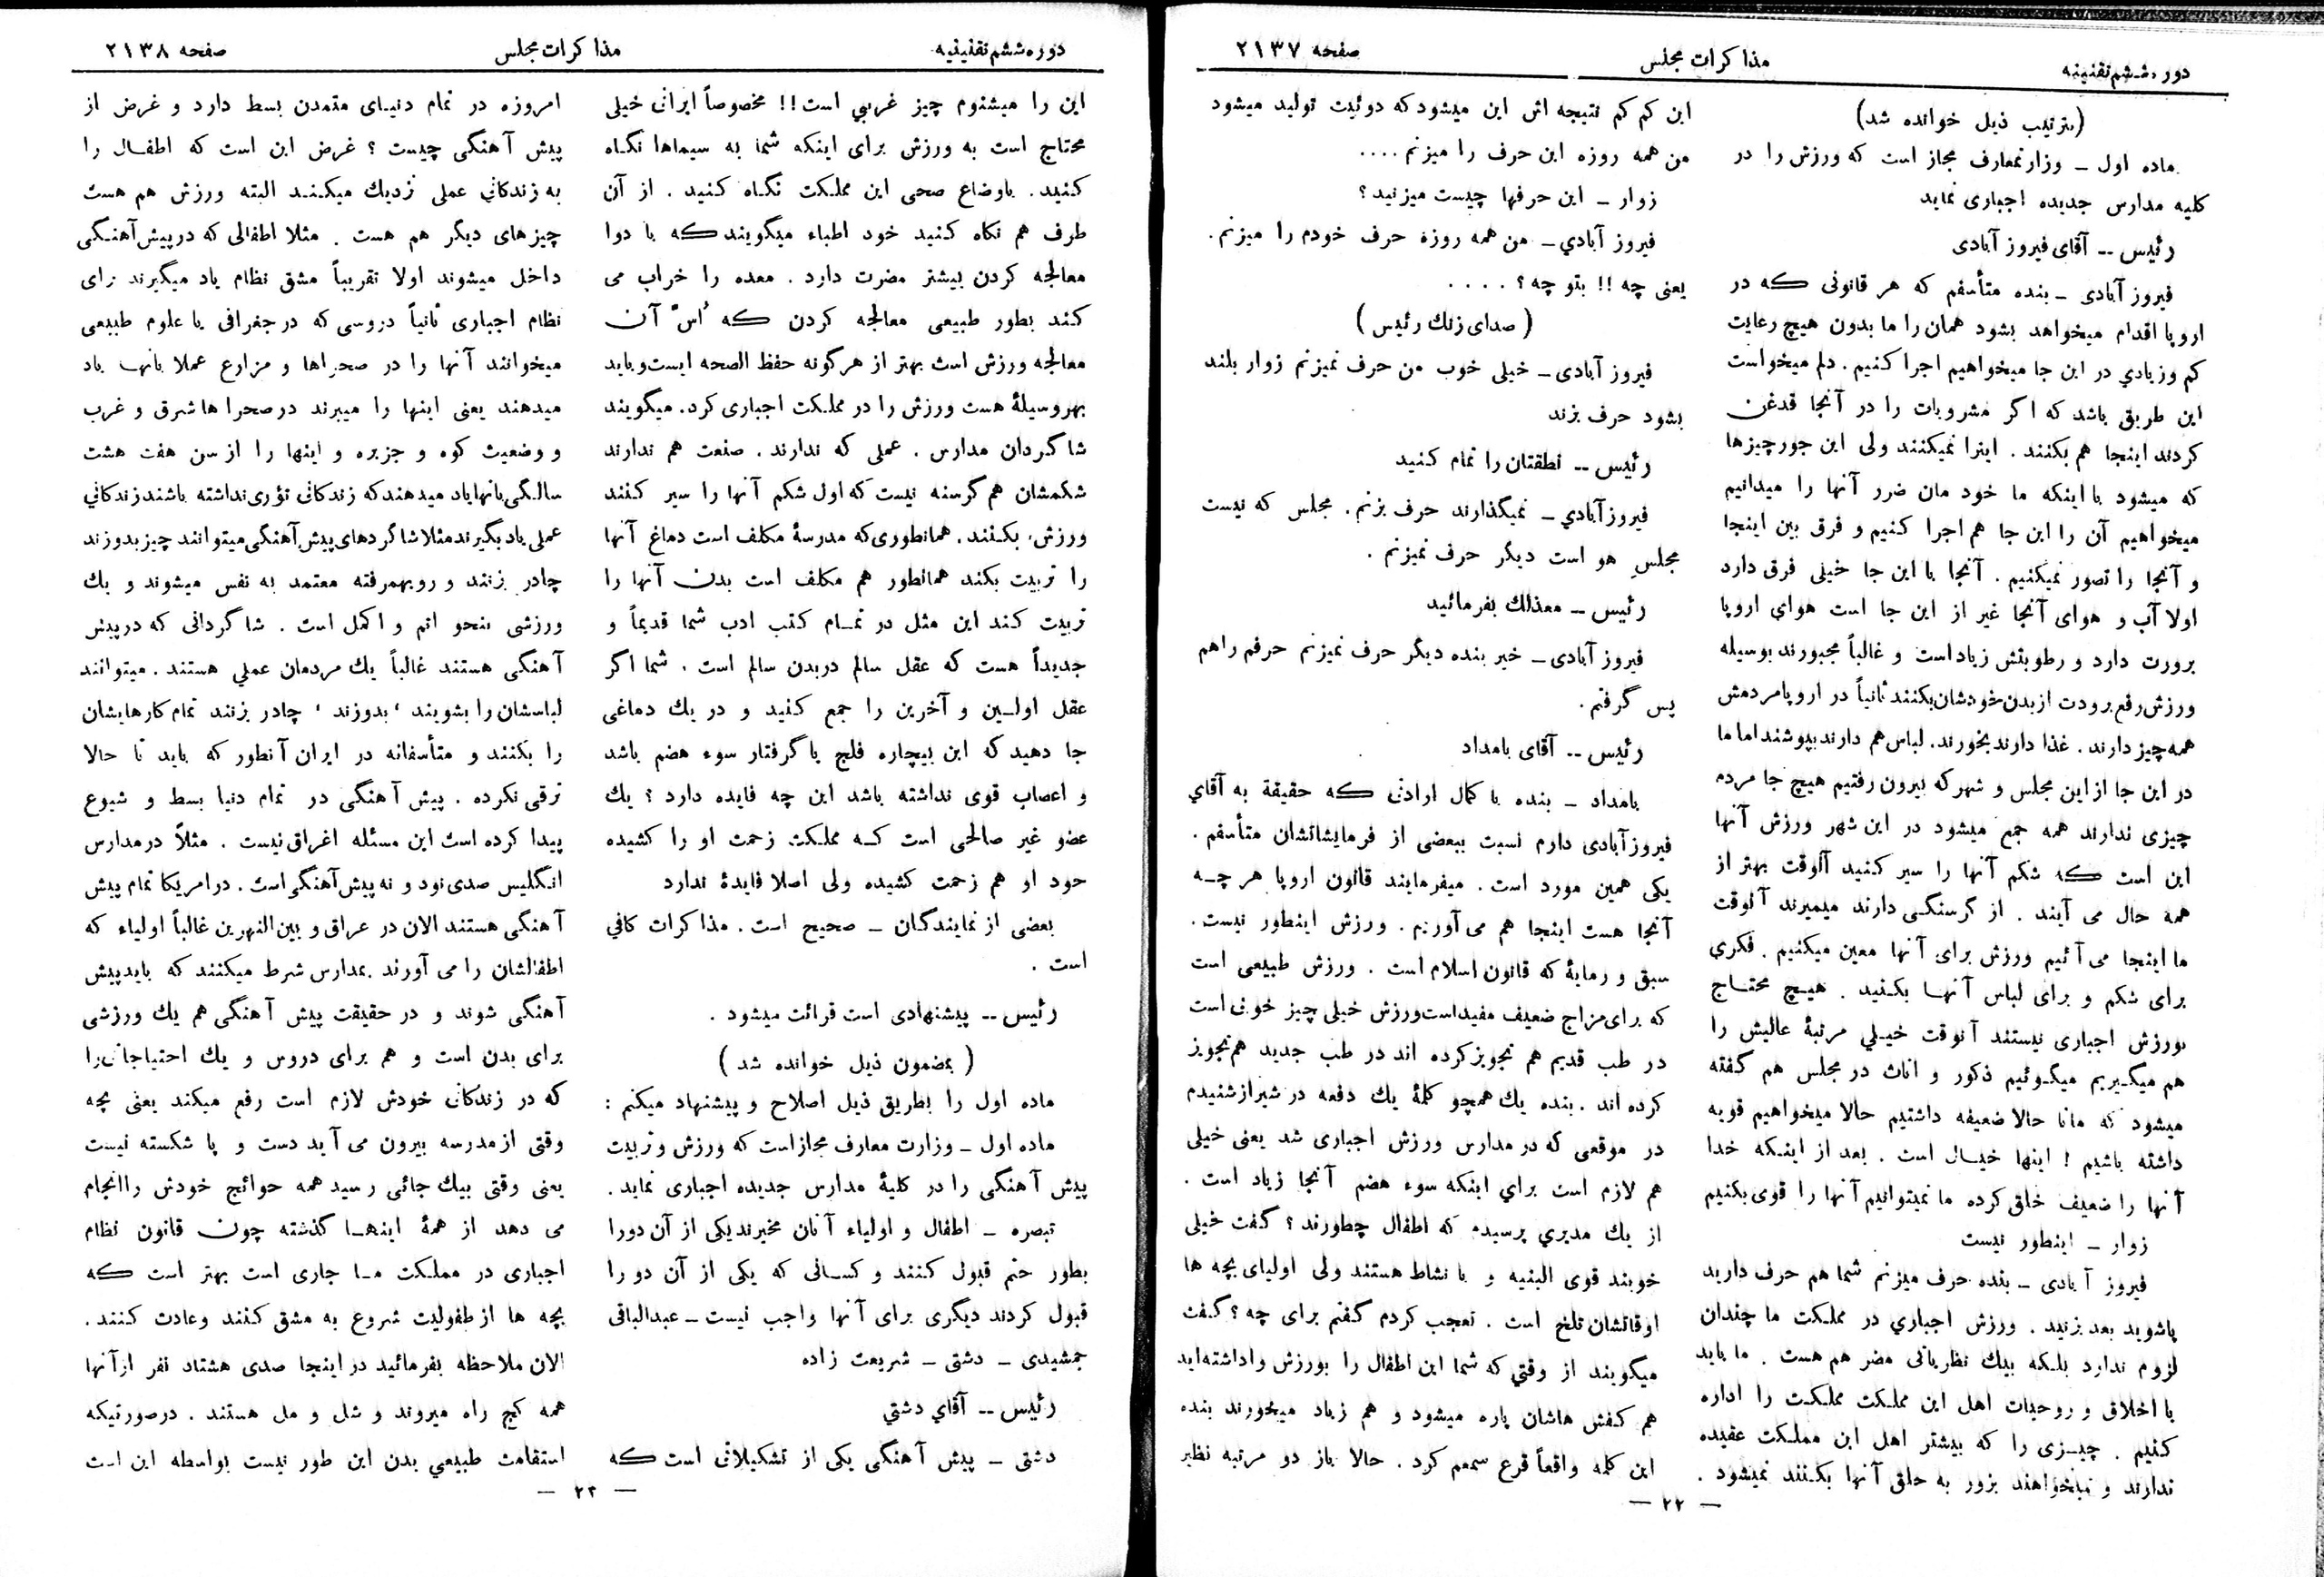 دوره ششم تقنینیه
مذاکرات مجلس
صفحه ۲۱۳۷
(بترتیب ذیل خوانده شد)
ماده اول ـ وزارتمعارف مجاز است که ورزش را در
کلیه مدارس جدیده اجباری نماید
رئیس -- آقای فیروز آبادی
فیروز آبادی ـ بنده متأسفم که هر قانونی که در
اروپا اقدام میخواهد بشود همان را ما بدون هیچ رعایت
کم وزیادي در این جا میخواهیم اجرا کنیم . دلم میخواست
این طریق باشد که اگر مشروبات را در آنجا قدغن
کردند اینجا هم بکنند . اینرا نمیکنند ولی این جور چیزها
که میشود با اینکه ما خود مان ضرر آنها را میدانیم
میخواهیم آن را این جا هم اجرا کنیم و فرق بین اینجا
و آنجا را تصور نمیکنیم . آنجا با این جا خیلی فرق دارد
اولا آب و هوای آنجا غیر از این جا است هوای اروپا
برورت دارد و رطوبتش زیاد است و غالباً مجبورند بوسیله
ورزش رفع برودت از بدن خودشان بکنند ثانیاً در اروپا مردمش
همه چیز دارند . غذا دارند بخورند . لباس هم دارند بپوشند اما ما
در این جا از این مجلس و شهر که بیرون رفتیم هیچ جا مردم
چیزی ندارند همه جمع میشود در این شهر ورزش آنها
این است که شکم آنها را سیر کنید آنوقت بهتر از
همه حال می آیند . از گرسنگی دارند میمیرند آنوقت
ما اینجا می آئیم ورزش برای آنها معین میکنیم . فکري
برای شکم و برای لباس آنها بکنید . هیچ محتاج
بورزش اجباری نیستند آنوقت خیلي مرتبهٔ عالیش را
هم میگیریم میگوئیم ذکور و اناث در مجلس هم گفته
میشود که ماتا حالا ضعیفه داشتیم حالا میخواهیم قویه
داشته باشیم ! اینها خیال است . بعد از اینکه خدا
آنها را ضعیف خلق کرده ما نمیتوانیم آنها را قوی بکنیم
زوار ـ اینطور نیست
فیروز آبادی ـ بنده حرف میزنم شما هم حرف دارید
پاشوید بعد بزنید . ورزش اجباري در مملکت ما چندان
لزوم ندارد بلکه بیك نظریاتی مضر هم هست . ما باید
با اخلاق و روحیات اهل این مملکت مملکت را اداره
کنیم . چیزی را که بیشتر اهل این مملکت عقیده
ندارند و نمیخواهند بزور به حلق آنها بکنند نمیشود .
این کم کم نتیجه اش این میشود که دوئیت تولید میشود
من همه روزه این حرف را میزنم ....
زوار ـ این حرفها چیست میزنید ؟
فیروز آبادي ـ من همه روزه حرف خودم را میزنم .
یعنی چه !! بتو چه ؟ ....
( صدای زنك رئیس )
فیروز آبادی ـ خیلی خوب من حرف نمیزنم زوار بلند
بشود حرف بزند
رئیس -- نطقتان را تمام کنید
فیروزآبادي ـ نمیگذارند حرف بزنم . مجلس که نیست
مجلسِ هو است دیگر حرف نمیزنم .
رئیس -- معذلك بفرمائید
فیروز آبادی ـ خیر بنده دیگر حرف نمیزنم حرفم راهم
پس گرفتم .
رئیس -- آقای بامداد
بامداد ـ بنده با کمال ارادتی که حقیقة به آقاي
فیروزآبادی دارم نسبت ببعضی از فرمایشاتشان متأسفم .
یکی همین مورد است . میفرمایند قانون اروپا هر چه
آنجا هست اینجا هم می آوریم . ورزش اینطور نیست .
سبق و رمایهٔ که قانون اسلام است . ورزش طبیعی است
که برای مزاج ضعیف مفید است ورزش خیلی چیز خوبی است
در طب قدیم هم تجویز کرده اند در طب جدید هم تجویز
کرده اند . بنده یك همچو کلمهٔ یك دفعه در شیراز شنیدم
در موقعی که در مدارس ورزش اجباری شد یعنی خیلی
هم لازم است براي اینکه سوء هضم آنجا زیاد است .
از یك مدیري پرسیدم که اطفال چطورند ؟ گفت خیلی
خوبند قوی البنیه و با نشاط هستند ولی اولیای بچه ها
اوقاتشان تلخ است . تعجب کردم گفتم برای چه ؟ گفت
میگویند از وقتي که شما این اطفال را بورزش واداشته‌اید
هم کفش هاشان پاره میشود و هم زیاد میخورند بنده
این کلمه واقعاً قرع سمعم کرد . حالا باز دو مرتبه نظیر
— ۲۲ —
دوره ششم تقنینیه
مذاکرات مجلس
صفحه ۲۱۳۸
این را میشنوم چیز غریبي است !! مخصوصاً ایرانی خیلی
محتاج است به ورزش برای اینکه شما به سیماها نگاه
کنید . باوضاع صحی این مملکت نگاه کنید . از آن
طرف هم نکاه کنید خود اطباء میگویند که با دوا
معالجه کردن بیشتر مضرت دارد . معده را خراب می
کند بطور طبیعی معالجه کردن که اُسّ آن
معالجه ورزش است بهتر از هر گونه حفظ الصحه ایست و باید
بهروسیلهٔ هست ورزش را در مملکت اجباری کرد . میگویند
شاگردان مدارس . عملی که ندارند . صنعت هم ندارند
شکمشان هم گرسنه نیست که اول شکم آنها را سیر کنند
ورزش، بکنند . همانطوری که مدرسهٔ مکلف است دماغ آنها
را تربیت بکند همانطور هم مکلف است بدن آنها را
تربیت کند این مثل در تمام کتب ادب شما قدیماً و
جدیداً هست که عقل سالم در بدن سالم است . شما اگر
عقل اولین و آخرین را جمع کنید و در یك دماغی
جا دهید که این بیچاره فلج یا گرفتار سوء هضم باشد
و اعصاب قوی نداشته باشد این چه فایده دارد ؟ یك
عضو غیر صالحی است که مملکت زحمت او را کشیده
خود او هم زحمت کشیده ولی اصلا فایدهٔ ندارد
بعضی از نمایندگان ـ صحیح است . مذاکرات کافي
است .
رئیس -- پیشنهادی است قرائت میشود .
( بمضمون ذیل خوانده شد )
ماده اول را بطریق ذیل اصلاح و پیشنهاد میکنم :
ماده اول ـ وزارت معارف مجاز است که ورزش و تربیت
پیش آهنگی را در کلیهٔ مدارس جدیده اجباری نماید .
تبصره ـ اطفال و اولیاء آنان مخیرند یکی از آن دورا
بطور حتم قبول کنند و کسانی که یکی از آن دو را
قبول کردند دیگری برای آنها واجب نیست ـ عبدالباقی
جمشیدی ـ دشتی ـ شریعت زاده
رئیس -- آقاي دشتي
دشتی ـ پیش آهنگی یکی از تشکیلاتی است که
امروزه در تمام دنیای متمدن بسط دارد و غرض از
پیش آهنگی چیست ؟ غرض این است که اطفال را
به زندکاني عملی نزدیك میکند البته ورزش هم هست
چیزهای دیگر هم هست . مثلا اطفالی که در پیش آهنگی
داخل میشوند اولا تقریباً مشق نظام یاد میگیرند برای
نظام اجباری ثانیاً دروسی که در جغرافی یا علوم طبیعی
میخوانند آنها را در صحراها و مزارع عملا بآنها یاد
میدهند یعنی اینها را میبرند در صحرا ها شرق و غرب
و وضعیت کوه و جزیره و اینها را از سن هفت هشت
سالگی بآنها یاد میدهند که زندکانی تؤری نداشته باشند زندکاني
عملی یاد بگیرند مثلا شاگردهای پیش آهنگی میتوانند چیز بدوزند
چادر بزنند و رویهمرفته معتمد به نفس میشوند و یك
ورزشی بنحو اتم و اکمل است . شاگردانی که در پیش
آهنگی هستند غالباً یك مردمان عملي هستند . میتوانند
لباسشان را بشویند ، بدوزند ، چادر بزنند تمام کارهایشان
را بکنند و متأسفانه در ایران آنطور که باید تا حالا
ترقی نکرده . پیش آهنگی در تمام دنیا بسط و شیوع
پیدا کرده است این مسئله اغراق نیست . مثلاً در مدارس
انگلیس صدی نود و نه پیش آهنگی است . در امریکا تمام پیش
آهنگی هستند الان در عراق و بین النهرین غالباً اولیاء که
اطفالشان را می آورند بمدارس شرط میکنند که باید پیش
آهنگی شوند و در حقیقت پیش آهنگی هم یك ورزشی
برای بدن است و هم برای دروس و یك احتیاجاتی را
که در زندکانی خودش لازم است رفع میکند یعنی بچه
وقتی از مدرسه بیرون می آید دست و پا شکسته نیست
یعنی وقتی بیك جائی رسید همه حوائج خودش را انجام
می دهد از همهٔ اینها گذشته چون قانون نظام
اجباری در مملکت ما جاری است بهتر است که
بچه ها از طفولیت شروع به مشق کنند وعادت کنند .
الان ملاحظه بفرمائید در اینجا صدی هشتاد نفر از آنها
همه کج راه میروند و شل و مل هستند . درصورتیکه
استقامت طبیعي بدن این طور نیست بواسطه این است
— ۲۳ —